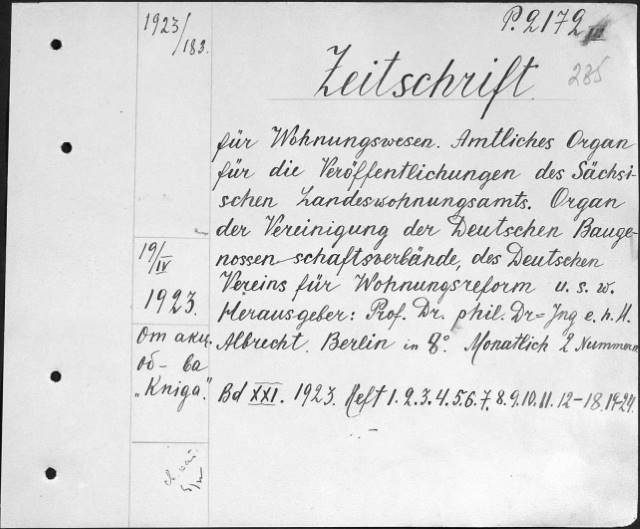 1923/183.
P. 2172 III
Zeitschrift
285
für Wohnungswesen. Amtliches Organ
für die Veröffentlichungen des Sächsi-
schen Landeswohnungsamts. Organ
der Vereinigung der Deutschen Bauge-
nossen schaftsverbände, des Deutschen
Vereins für Wohnungsreform u. s. w.
Herausgeber: Prof. Dr. phil. Dr=Ing e. h. H.
Albrecht. Berlin in 8°. Monatlich 2 Nummern
Bd XXI. 1923. Heft 1.2.3.4.5.6.7.8.9.10.11.12-18.19-24.
19/IV
1923.
От акц.
об-ва
"Kniga".